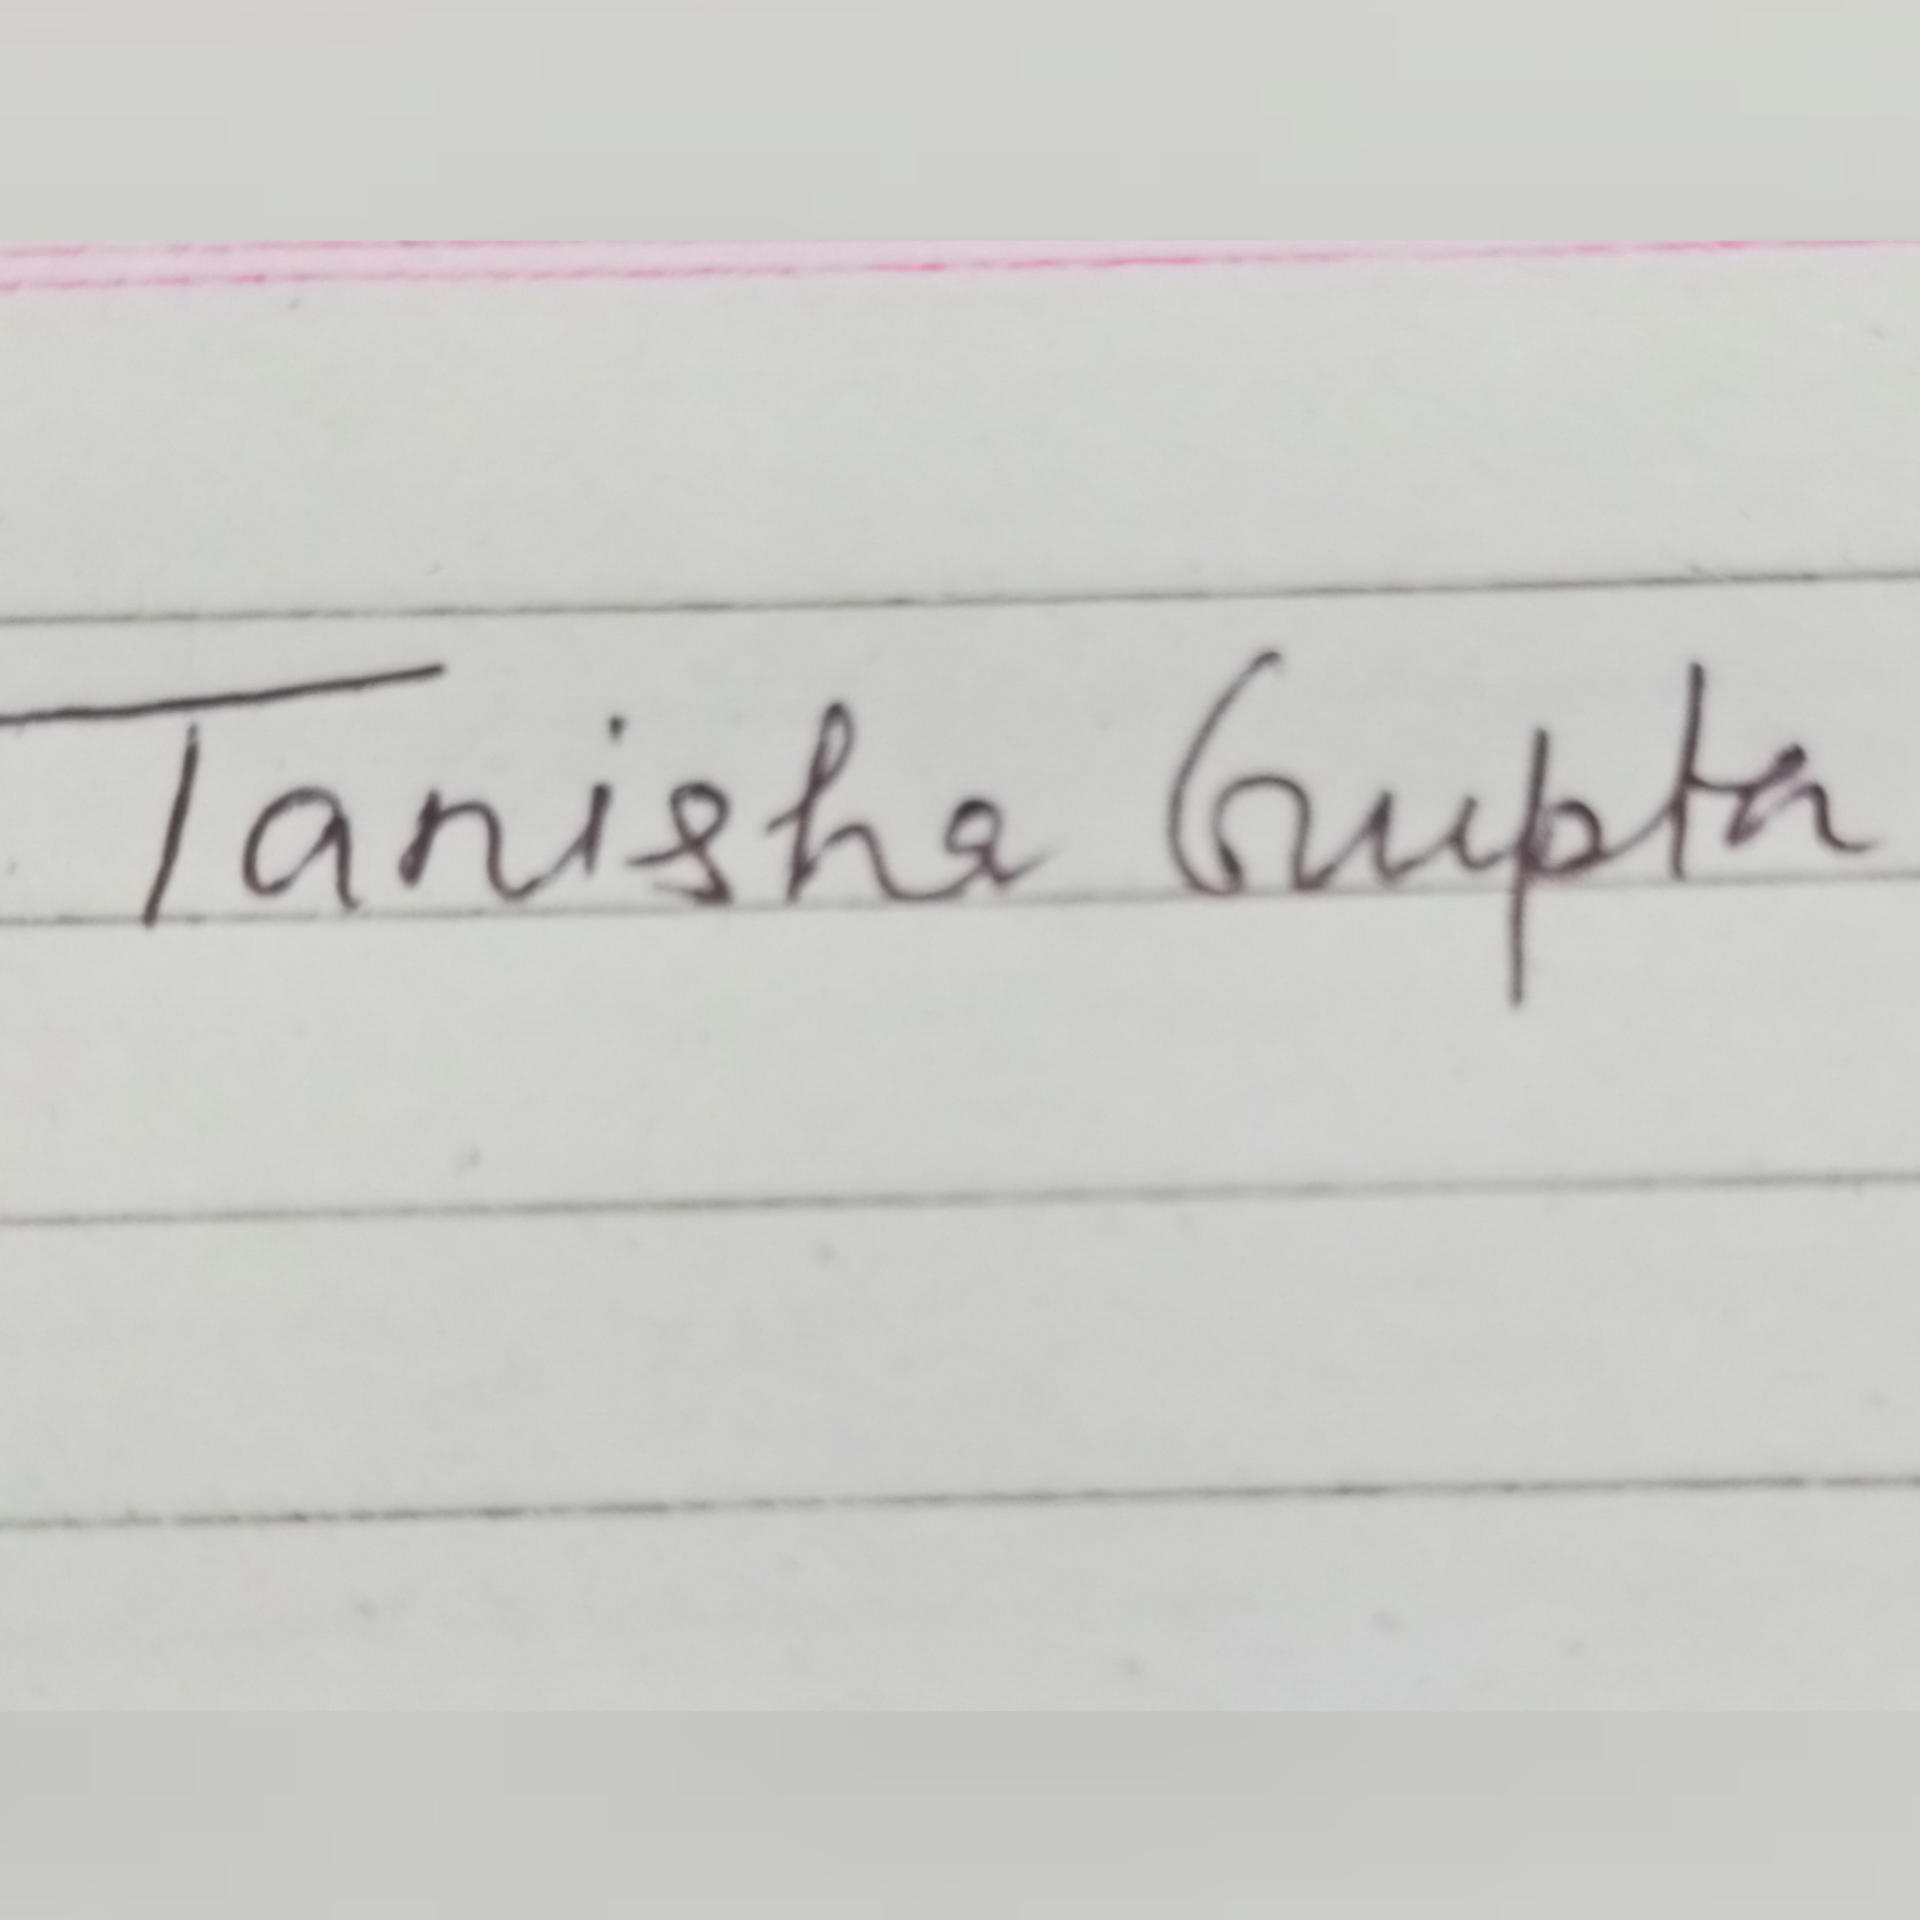 Tanisha Gupta